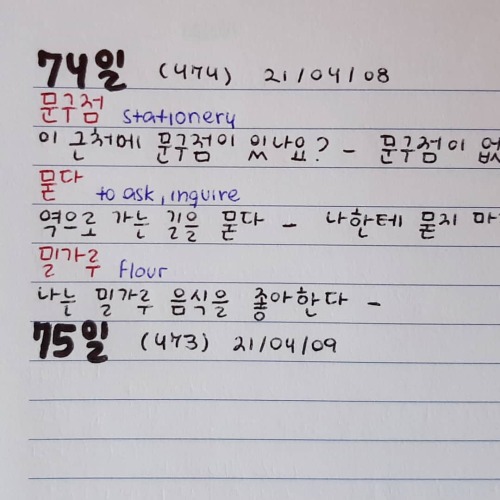 74일 (474) 21/04/08
문구점 stationery
이 근처에 문구점이 있나요? - 문구점이
묻다 to ask, inquire
역으로 가는 길을 묻다 - 나한테 묻지
밀가루 flour
나는 밀가루 음식을 좋아한다 -
75일 (473) 21/04/09